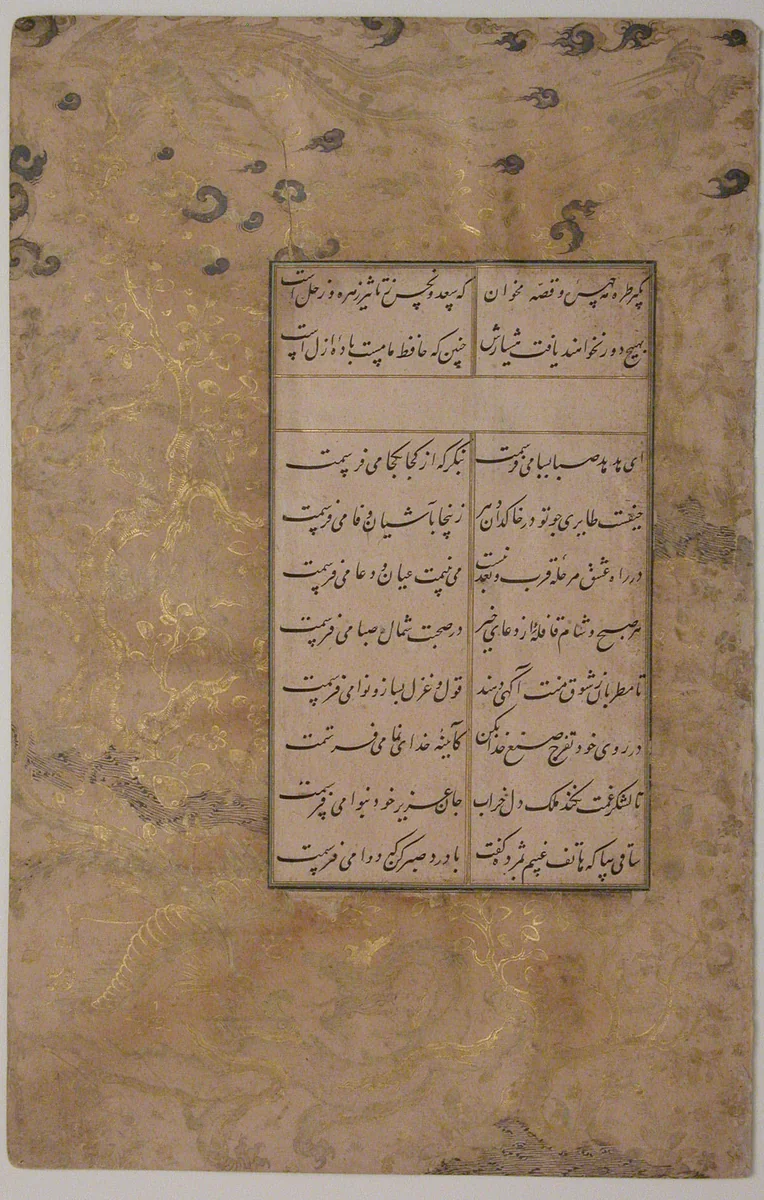 بگیر طره مه چهرهٔ و قصه مخوان که سعد و نحس ز تاثیر زهره و زحل است
بهیچ دور نخواهند یافت هشیارش چنین که حافظ ما مست باده ازل است
ای هدهد صبا بسبا می فرستمت بنگر که از کجا بکجا می فرستمت
حیفست طایری چو تو در خاکدان دهر زینجا بآشیان وفا می فرستمت
در راه عشق مرحلهٔ قرب و بعد نیست می بینمت عیان و دعا می فرستمت
هر صبح و شام قافلهٔ از دعای خیر در صحبت شمال و صبا می فرستمت
تا مطربان ز شوق منت آگهی دهند قول و غزل بساز و نوا می فرستمت
در روی خود تفرج صنع خدا بکن کآیینه خدای نما می فرستمت
تا لشکر غمت نکند ملک دل خراب جان عزیز خود بنوا می فرستمت
ساقی بیا که هاتف غیبم بمژده گفت با درد صبر کن که دوا می فرستمت